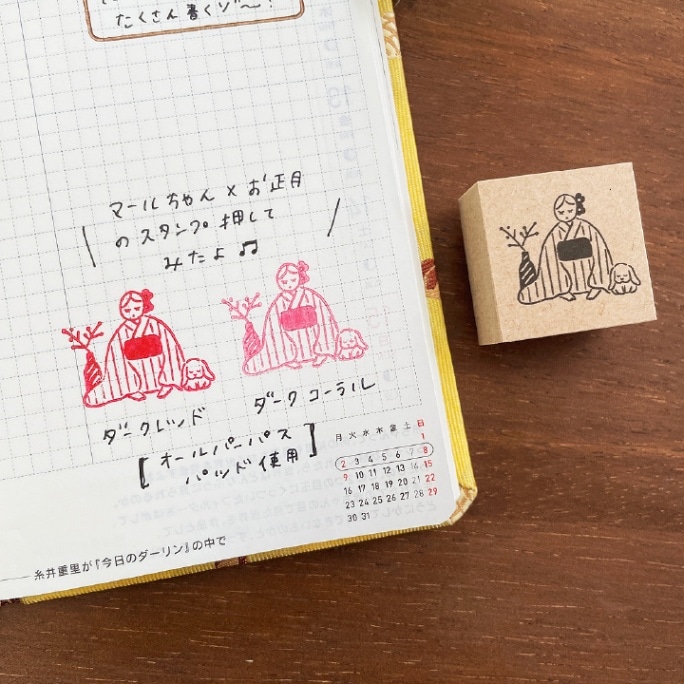 たくさん書くゾ〜!
マールちゃん × お正月
のスタンプ押して
みたよ♫
ダークレッド
ダークコーラル
[オールパーパス
パッド使用]
月 火 水 木 金 土 日
1
2 3 4 5 6 7 8
9 10 11 12 13 14 15
16 17 18 19 20 21 22
23 24 25 26 27 28 29
30 31
糸井重里が『今日のダーリン』の中で